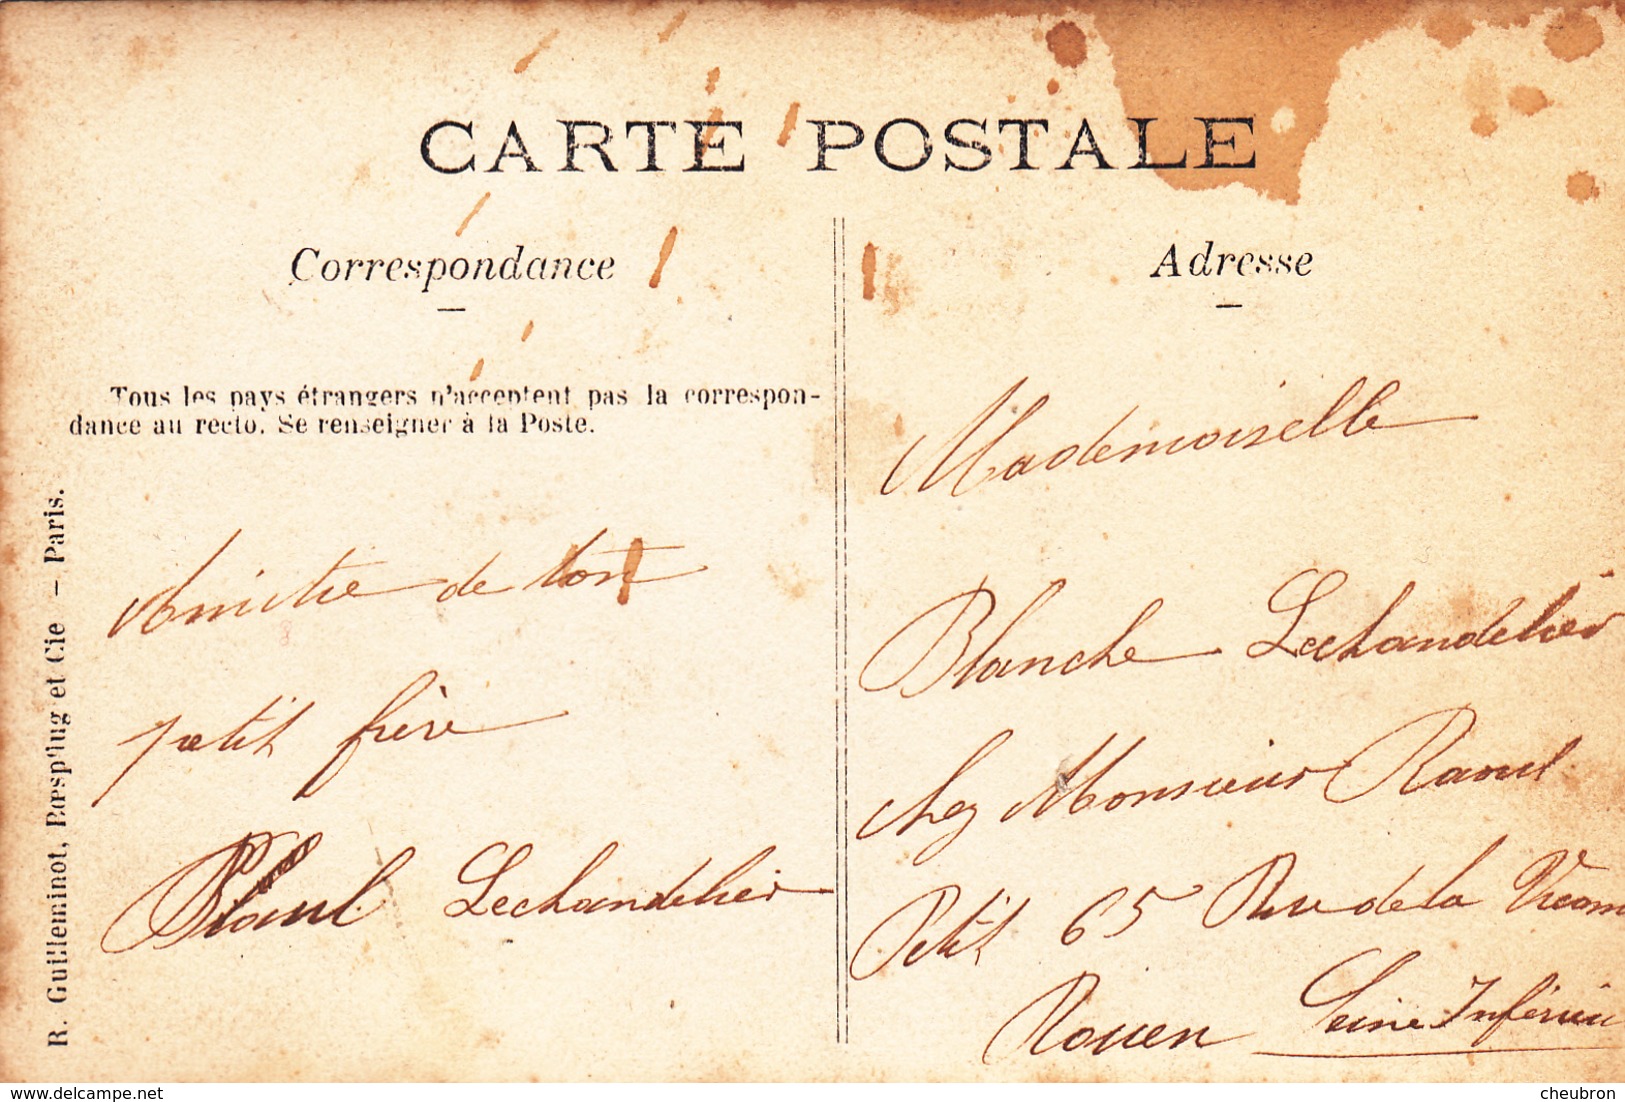 CARTE POSTALE
Correspondance
Adresse
Tous les pays étrangers n'acceptent pas la correspon-
dance au recto. Se renseigner à la Poste.
R. Guilleminot, Bœspflug et Cie – Paris.
Amitie de ton
petit frère
Paul Lechandelier
Mademoiselle
Blanche Lechandelier
chez Monsieur Raoul
Petit 65 Rue de la Vicom
Rouen Seine Inférieu
delcampe.net
cheubron